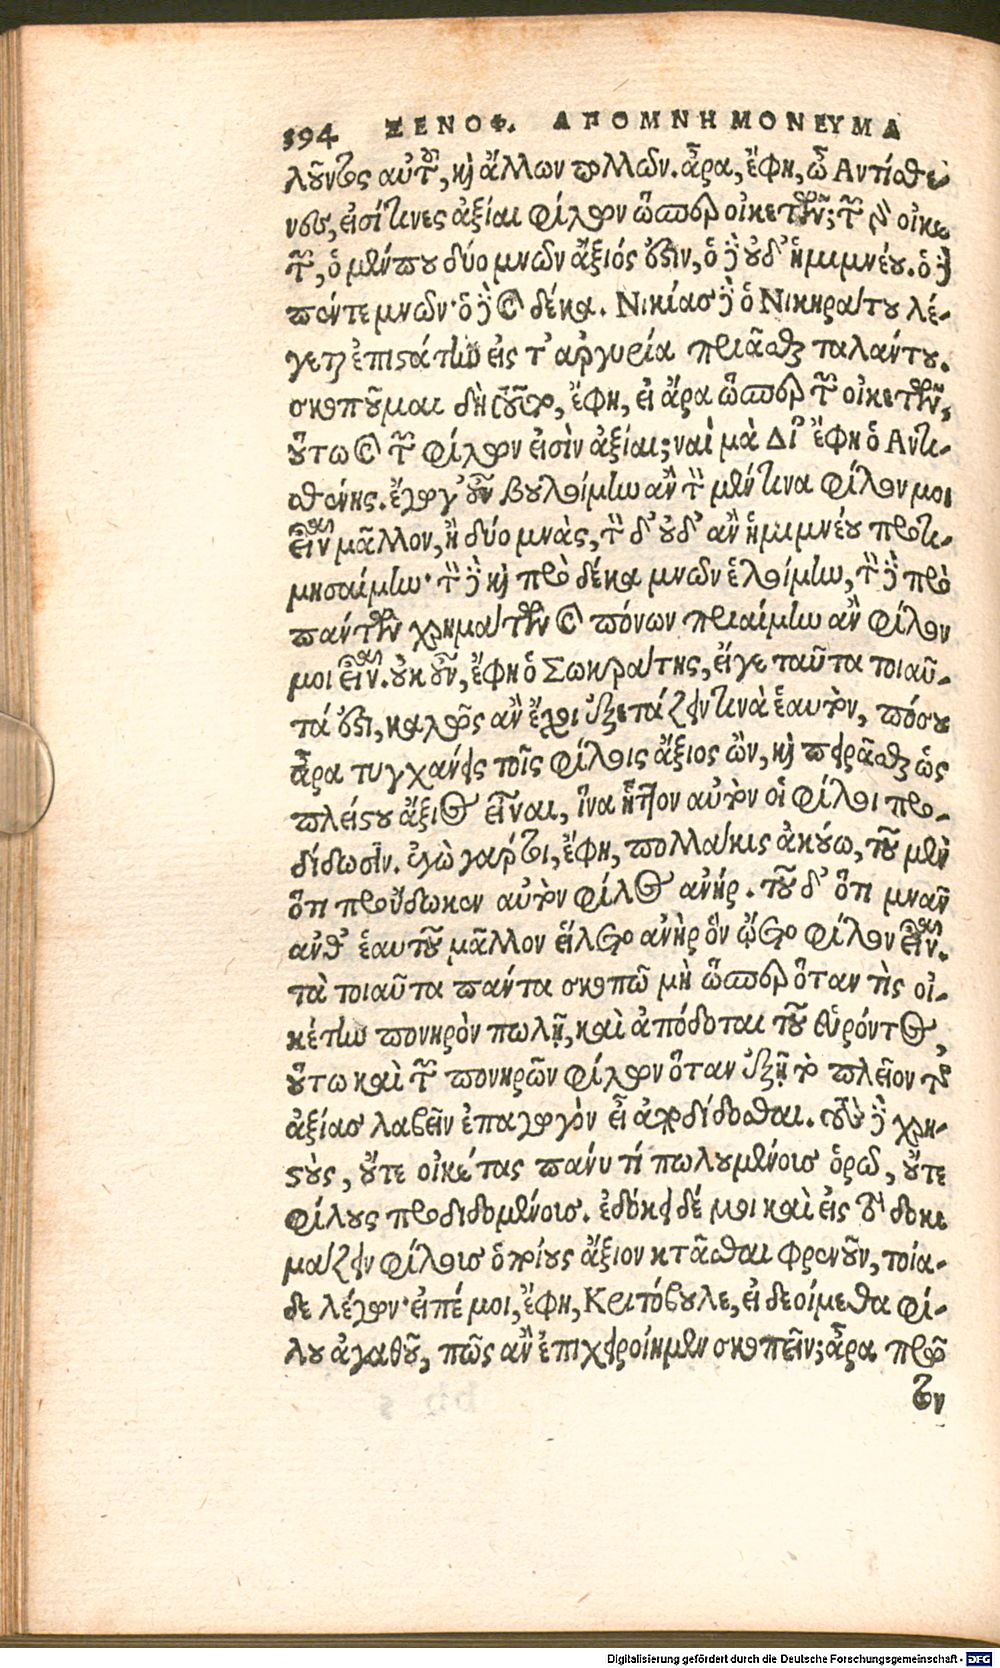 394 ΞΕΝΟΦ. ΑΠΟΜΝΗΜΟΝΕΥΜΑ
λοῦντος αὐτοῦ, καὶ ἄλλων πολλῶν. ἆρα, ἔφη, ὦ Αντίσθε-
νες, εἰσί τινες ἀξίαι φίλων ὥσπερ οἰκετῶν; τῶν γὰρ οἰκε
τῶν, ὁ μέν που δύο μνῶν ἄξιός ἐστιν, ὁ δὲ οὐδ' ἡμιμνέου. ὁ δὲ
πέντε μνῶν· ὁ δὲ καὶ δέκα. Νικίας δὲ ὁ Νικηράτου λέ-
γεται ἐπιστάτην εἰς τ' ἀργυρία πρίασθαι ταλάντου.
σκοποῦμαι δὴ τοῦτο, ἔφη, εἰ ἄρα ὥσπερ τῶν οἰκετῶν,
οὕτω καὶ τῶν φίλων εἰσὶν ἀξίαι; ναὶ μὰ Δί' ἔφη ὁ Αντι-
σθένης. ἔγωγ' οὖν βουλοίμην ἂν τὸν μέν τινα φίλον μοι
εἶναι μᾶλλον, ἢ δύο μνᾶς, τὸν δ' οὐδ' ἂν ἡμιμνέου προτι-
μησαίμην· τὸν δὲ καὶ πρὸ δέκα μνῶν ἑλοίμην, τὸν δὲ πρὸ
πάντων χρημάτων καὶ πόνων πριαίμην ἂν φίλον
μοι εἶναι. οὐκοῦν, ἔφη ὁ Σωκράτης, εἴγε ταῦτα τοιαῦ-
τά ἐστι, καλῶς ἂν ἔχοι ἐξετάζειν τινὰ ἑαυτὸν, πόσου
ἆρα τυγχάνει τοῖς φίλοις ἄξιος ὢν, καὶ πειρᾶσθαι ὡς
πλείστου ἄξιος εἶναι, ἵνα ἧττον αὐτὸν οἱ φίλοι προ-
δίδωσιν. ἐγὼ γάρ τοι, ἔφη, πολλάκις ἀκούω, τοῦ μὲν
ὅτι προύδωκεν αὐτὸν φίλος ἀνήρ. τοῦ δ' ὅτι μνᾶν
ἀνθ' ἑαυτοῦ μᾶλλον εἵλετο ἀνὴρ ὃν ᾤετο φίλον εἶναι.
τὰ τοιαῦτα πάντα σκοπῶ μὴ ὥσπερ ὅταν τὶς οἰ-
κέτην πονηρὸν πωλῇ, καὶ ἀπόδοται τοῦ εὑρόντος,
οὕτω καὶ τῶν πονηρῶν φίλων ὅταν ἐξῇ τὸ πλεῖον τῆς
ἀξίας λαβεῖν ἐπαγωγὸν ᾖ ἀποδίδοσθαι. τοὺς δὲ χρη-
στοὺς, οὔτε οἰκέτας πάνυ τί πωλουμένους ὁρῶ, οὔτε
φίλους προδιδομένους. ἐδόκει δέ μοι καὶ εἰς τὸ δοκι
μάζειν φίλους ὁποίους ἄξιον κτᾶσθαι φρενοῦν, τοιά-
δε λέγων· εἰπέ μοι, ἔφη, Κριτόβουλε, εἰ δεοίμεθα φί-
λου ἀγαθοῦ, πῶς ἂν ἐπιχειροίημεν σκοπεῖν; ἆρα πρῶ
τον
Digitalisierung gefördert durch die Deutsche Forschungsgemeinschaft - DFG